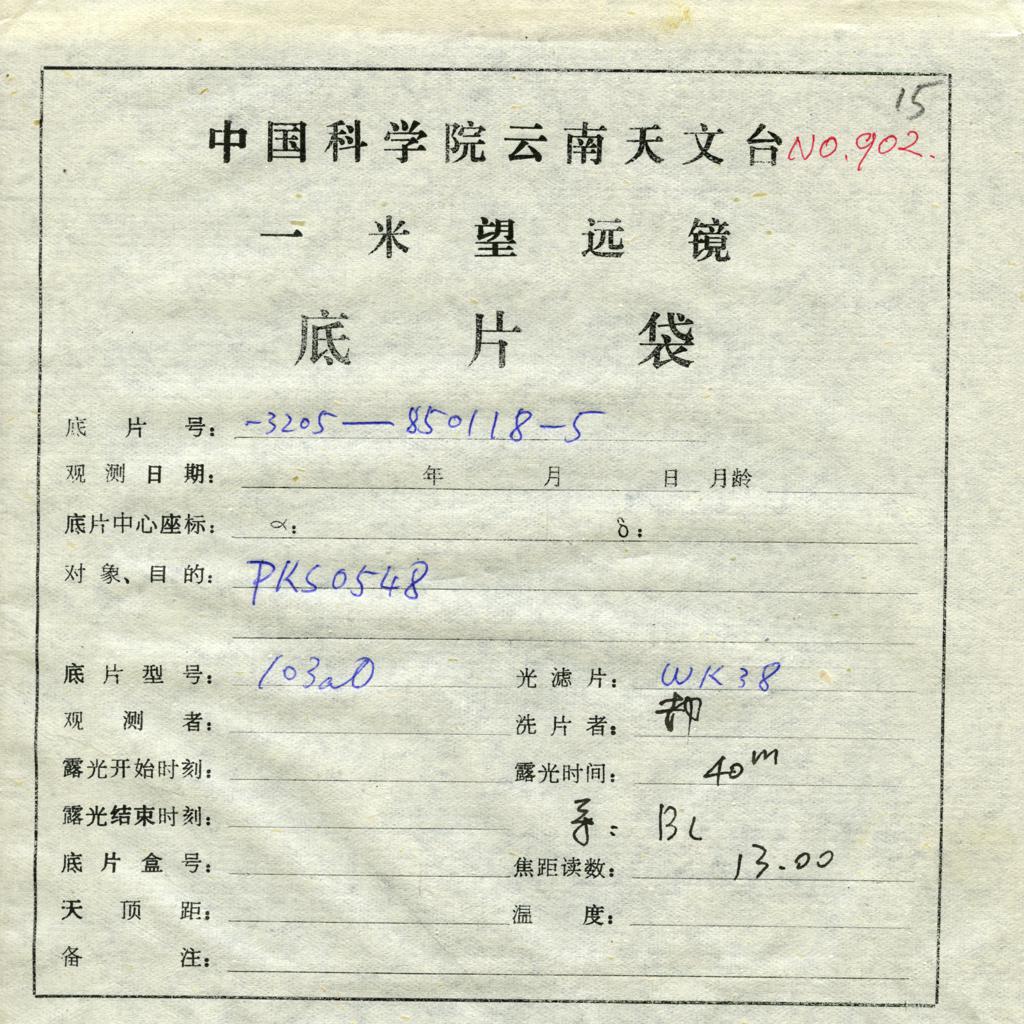 15
中国科学院云南天文台 NO.902.
一米望远镜
底片袋
底片号: -3205—850118-5
观测日期: 年 月 日 月龄
底片中心座标: α: δ:
对象、目的: PKS0548
底片型号: 103aO 光滤片: WK38
观测者: 洗片者:
露光开始时刻: 露光时间: 40m
露光结束时刻: 导: BL
底片盒号: 焦距读数: 13.00
天顶距: 温度:
备注: